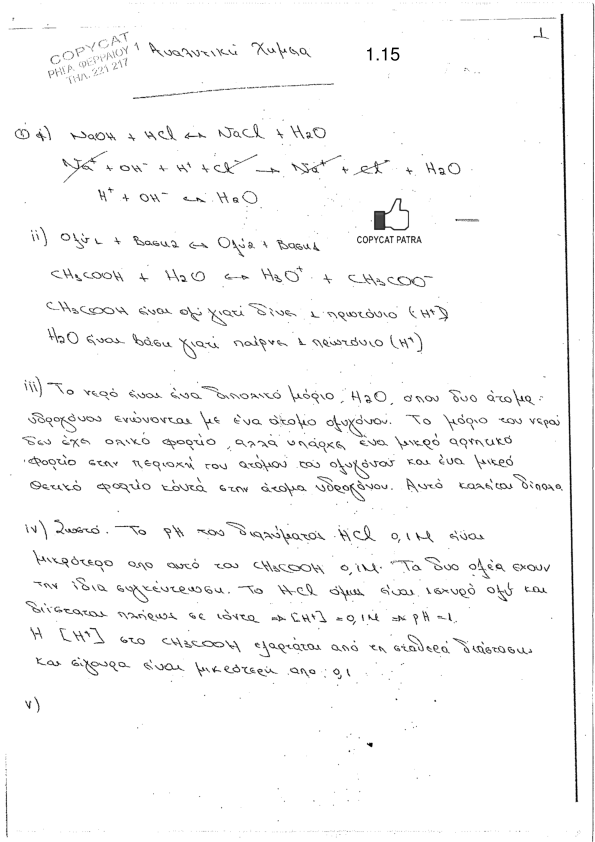 COPYCAT
ΡΗΓΑ ΦΕΡΡΑΙΟΥ 1
ΤΗΛ. 221 217
Αναλυτική Χημεία
1.15
1
① i) NaOH + HCl ↔ NaCl + H2O
Na⁺ + OH⁻ + H⁺ + Cl⁻ → Na⁺ + Cl⁻ + H2O
H⁺ + OH⁻ ↔ H2O
COPYCAT PATRA
ii) Οξύ1 + Βαση2 ↔ Οξύ2 + Βαση1
CH3COOH + H2O ↔ H3O⁺ + CH3COO⁻
CH3COOH είναι οξύ γιατί δίνει 1 πρωτόνιο (H⁺)
H2O είναι βάση γιατί παίρνει 1 πρωτόνιο (H⁺)
iii) Το νερό είναι ένα διπολικό μόριο, H2O, οπου δυο άτομα
υδρογόνου ενώνονται με ένα άτομο οξυγόνου. Το μόριο του νερού
δεν έχει ολικό φορτίο, αλλά υπάρχει ένα μικρό αρνητικό
φορτίο στην περιοχή του ατόμου του οξυγόνου και ένα μικρό
θετικό φορτίο κόντά στην άτομα υδρογόνου. Αυτό καλείται δίπολο
iv) Σωστό. Το pH του διαλύματος HCl 0,1M είναι
μικρότερο απο αυτό του CH3COOH 0,1M. Τα δυο οξέα έχουν
την ίδια συγκέντρωση. Το HCl όμως είναι ισχυρό οξύ και
διίσταται πλήρως σε ιόντα ⇒ [H⁺] = 0,1M ⇒ pH = 1.
Η [H⁺] στο CH3COOH εξαρτάται από τη σταθερά διάστασης
και σίγουρα είναι μικρότερη απο 0,1
v)